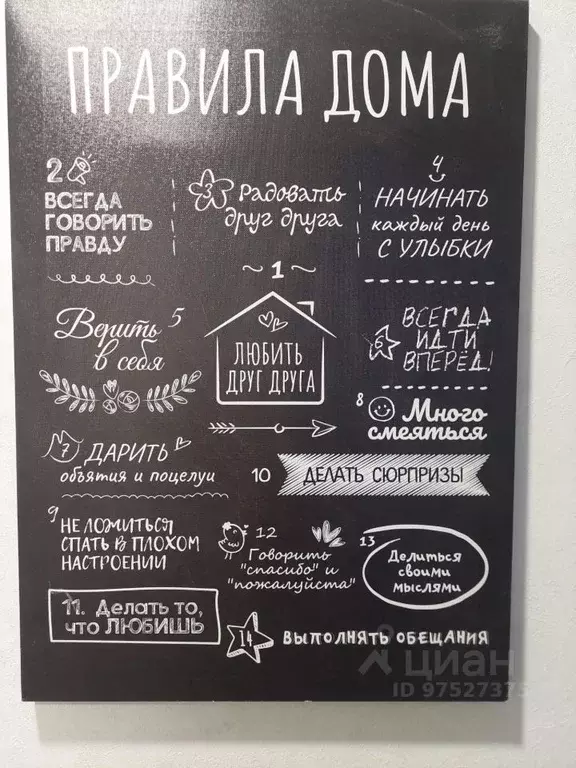 ПРАВИЛА ДОМА
2
ВСЕГДА
ГОВОРИТЬ
ПРАВДУ
3 Радовать
друг друга
4
НАЧИНАТЬ
каждый день
С УЛЫБКИ
~ 1 ~
ЛЮБИТЬ
ДРУГ ДРУГА
Верить 5
в себя
6 ВСЕГДА
ИДТИ
ВПЕРЁД!
7 ДАРИТЬ
объятия и поцелуи
8 Много
смеяться
9 НЕ ЛОЖИТЬСЯ
СПАТЬ В ПЛОХОМ
НАСТРОЕНИИ
10 ДЕЛАТЬ СЮРПРИЗЫ
11. Делать то,
что ЛЮБИШЬ
12
Говорить
"спасибо" и
"пожалуйста"
13
Делиться
своими
мыслями
14 ВЫПОЛНЯТЬ ОБЕЩАНИЯ
циан
ID 97527375